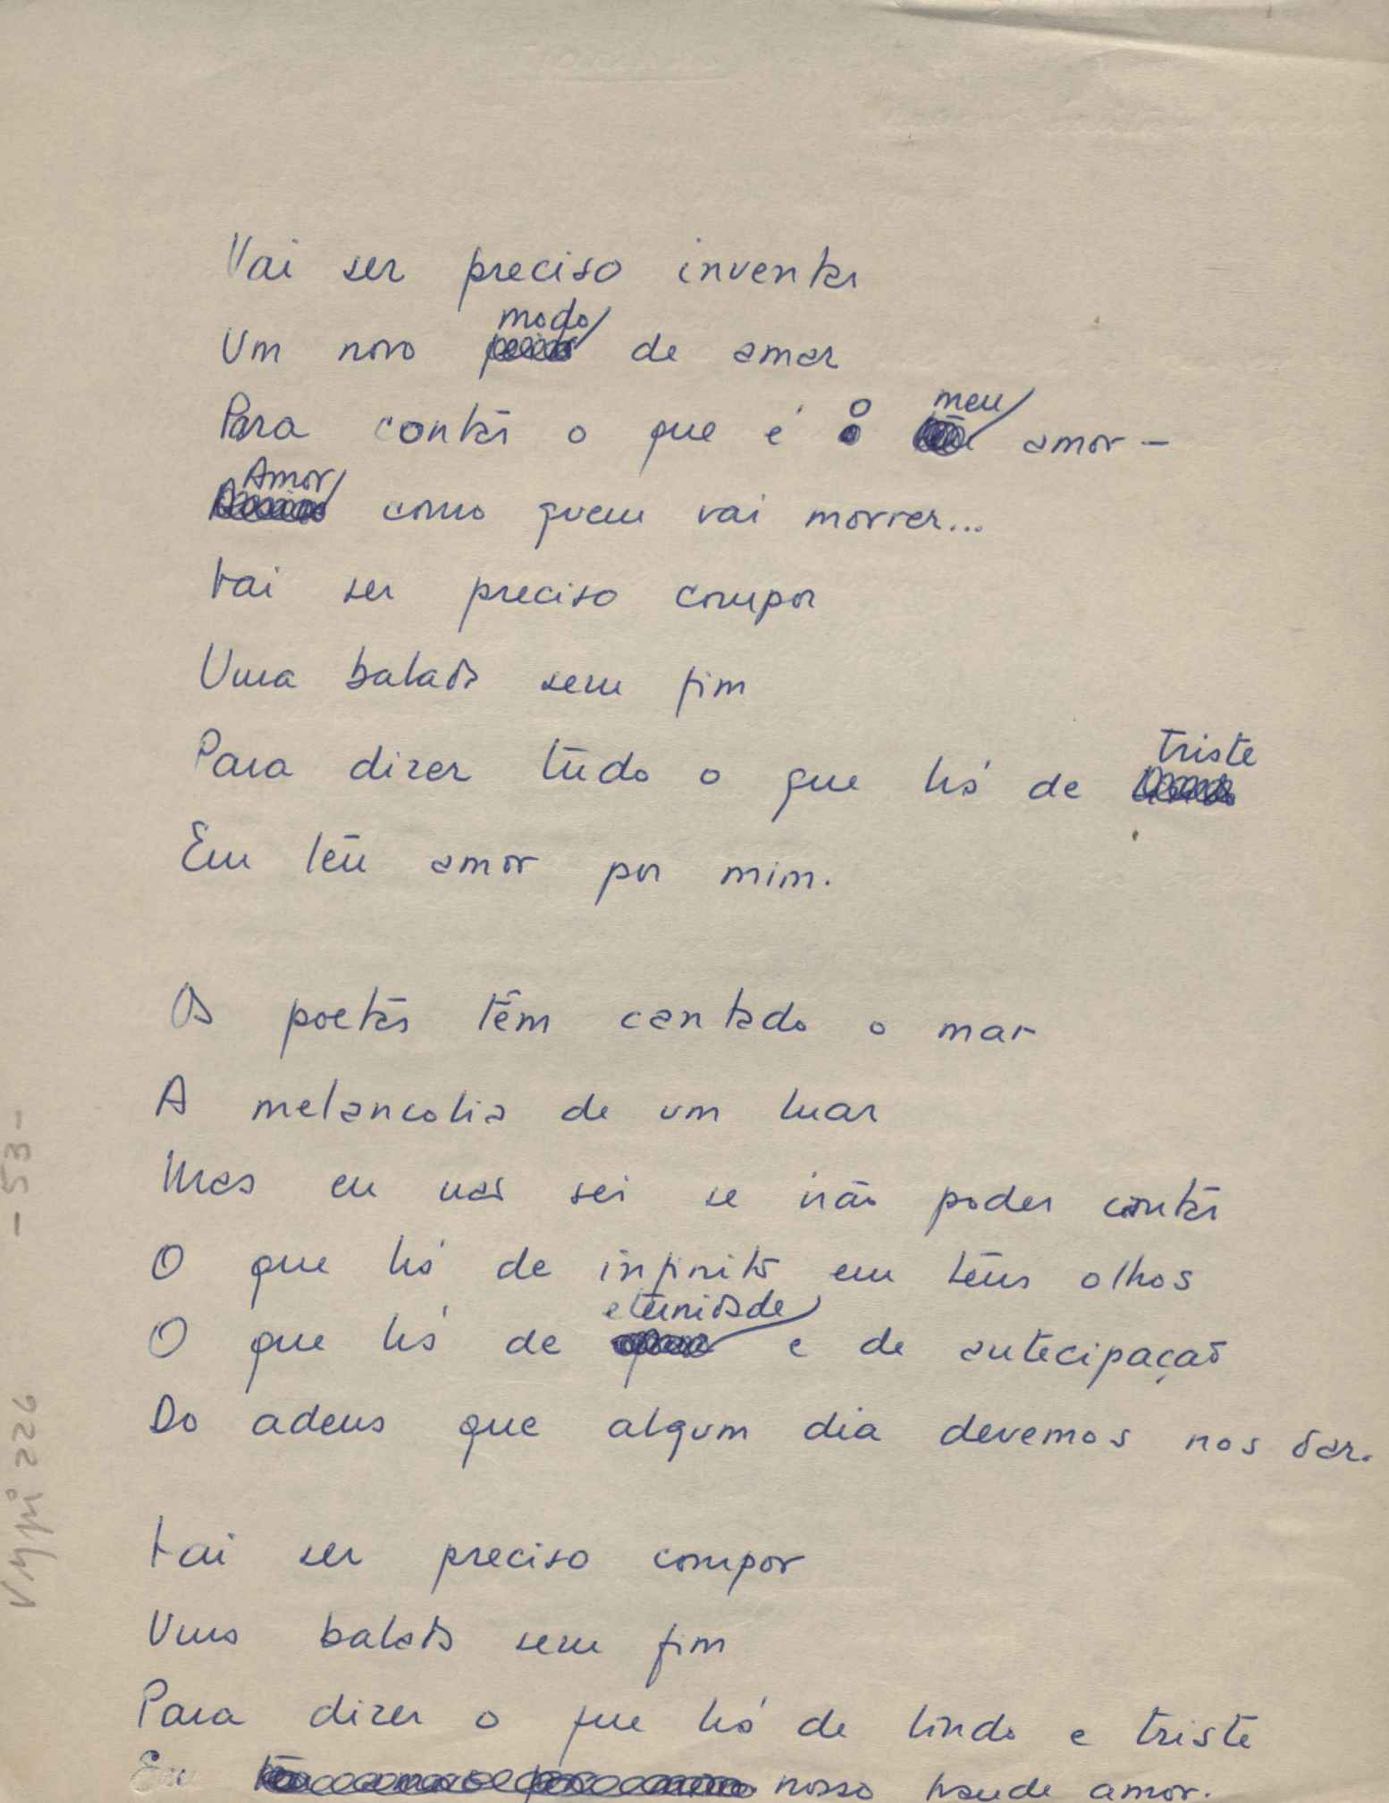 Vai ser preciso inventar
Um novo modo de amar
Para contar o que é o meu amor –
Amor como quem vai morrer...
Vai ser preciso compor
Uma balada sem fim
Para dizer tudo o que há de triste
Em teu amor por mim.
Os poetas têm cantado o mar
A melancolia de um luar
Mas eu não sei se irão poder contar
O que há de infinito em teus olhos
O que há de eternidade e de antecipação
Do adeus que algum dia devemos nos dar.
Vai ser preciso compor
Uma balada sem fim
Para dizer o que há de lindo e triste
Em nosso grande amor.
- 53 -
226